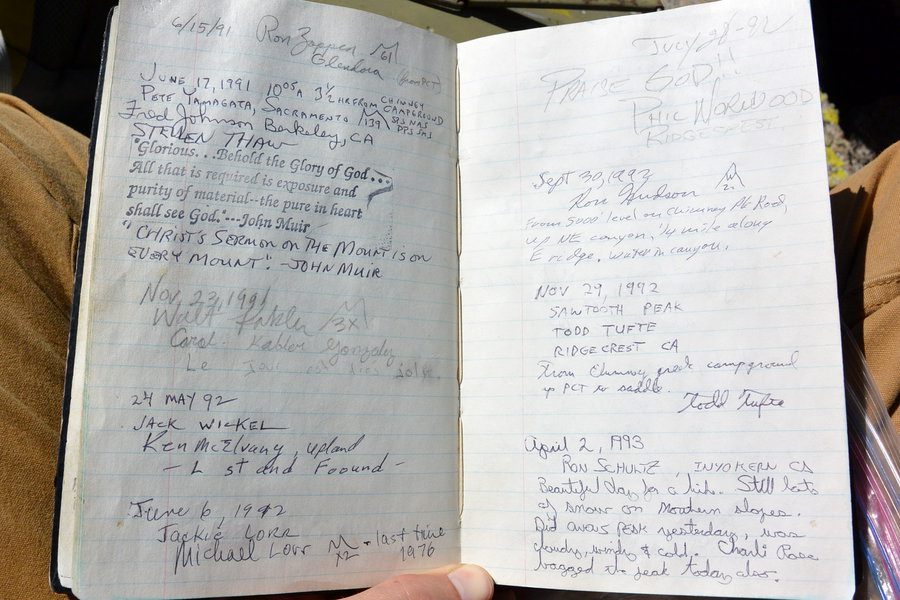 6/15/91 Ron
61
Glendora (from PCT)
June 17, 1991 10:05A 3 1/2 HR FROM CHIMNEY CAMPGROUND
Pete Yamagata, Sacramento 139 SPS NAS DPS SMS
Fred Johnson Berkeley, CA
STEVEN THAW
"Glorious. . .Behold the Glory of God. . .
All that is required is exposure and
purity of material--the pure in heart
shall see God."---John Muir
"CHRIST'S SERMON ON THE MOUNT IS ON
EVERY MOUNT." -JOHN MUIR
Nov 23, 1991
Walt 3X
Carol Kabler Gonzalez
Le
24 MAY 92
JACK WICKEL
Ken McElvany, upland
- L st and Foound -
June 6, 1992
Jackie Lorr
Michael Lorr X2 - last time
1976
JULY 28-92
PRAISE GOD!!
PHIC WORWOOD
RIDGECREST
Sept 30, 1992
Ron Hudson 21
From 5000' level on Chimney Pk Road
up NE canyon, 1/4 mile along
E ridge. Water in canyon.
NOV 29, 1992
SAWTOOTH PEAK
TODD TUFTE
RIDGECREST CA
From Chimney creek campground
up PCT to saddle.
Todd Tufte
April 2, 1993
RON SCHULTZ, INYOKERN CA
Beautiful day for a hike. Still lots
of snow on Northern slopes.
Did Owens PEAK yesterday, was
cloudy, windy & cold. Charli
bagged the peak today also.